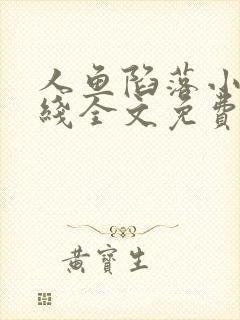 人鱼陷落小
綫全文免費
黃寶生